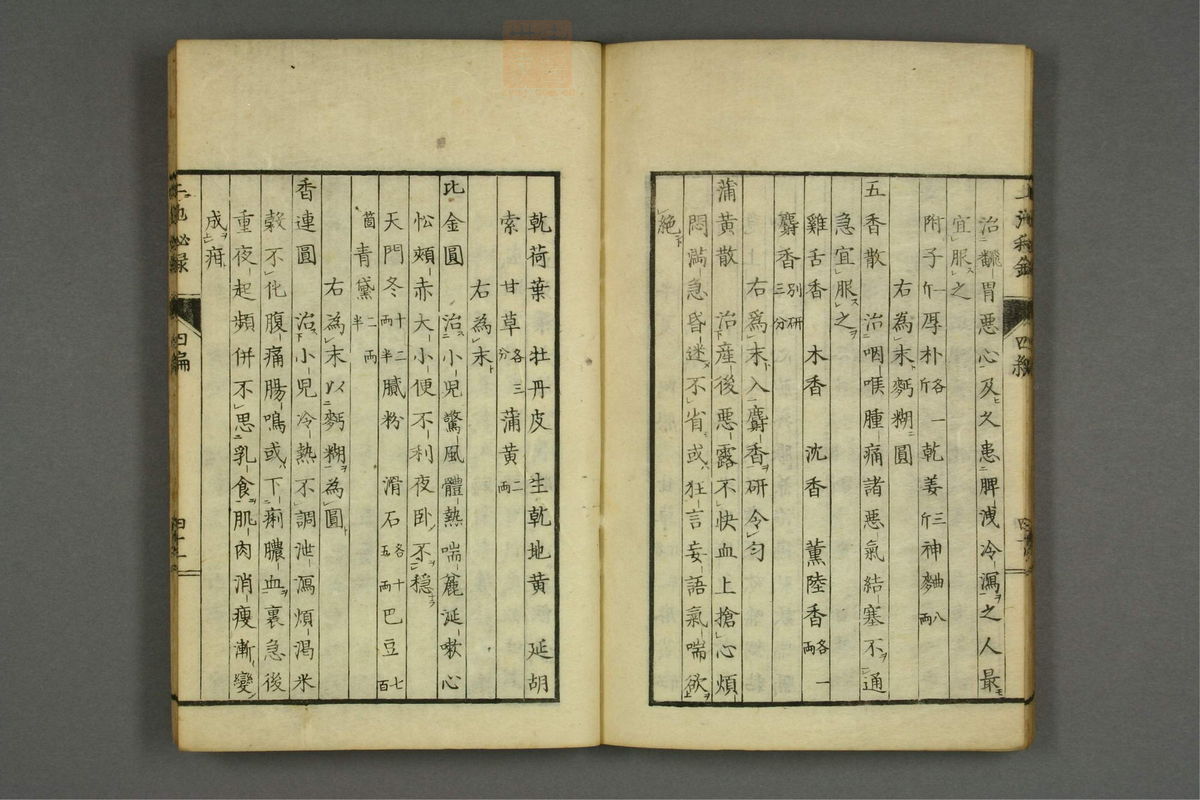 治翻胃惡心及久患脾洩冷瀉之人最
宜服之
附子一斤厚朴各一斤乾姜三斤神麯八兩
右為末麪糊圓
五香散 治咽喉腫痛諸惡氣結塞不通
急宜服之
雞舌香 木香 沈香 薰陸香各一兩
麝香別研三分
右爲末入麝香研令匀
蒲黄散 治産後惡露不快血上搶心煩
悶満急昏迷不省或狂言妄語氣喘欲
絶
乾荷葉 牡丹皮 生乾地黄 延胡
索 甘草各三分蒲黄二兩
右為末
比金圓 治小兒驚風體熱喘麄涎嗽心
忪頰赤大小便不利夜卧不穏
天門冬十二兩半膩粉 滑石各十五兩巴豆七百
箇青黛二兩半
右為末以麪糊為圓
香連圓 治小兒冷熱不調泄瀉煩渴米
穀不化腹痛腸鳴或下痢膿血裏急後
重夜起頻併不思乳食肌肉消瘦漸變
成疳
四編